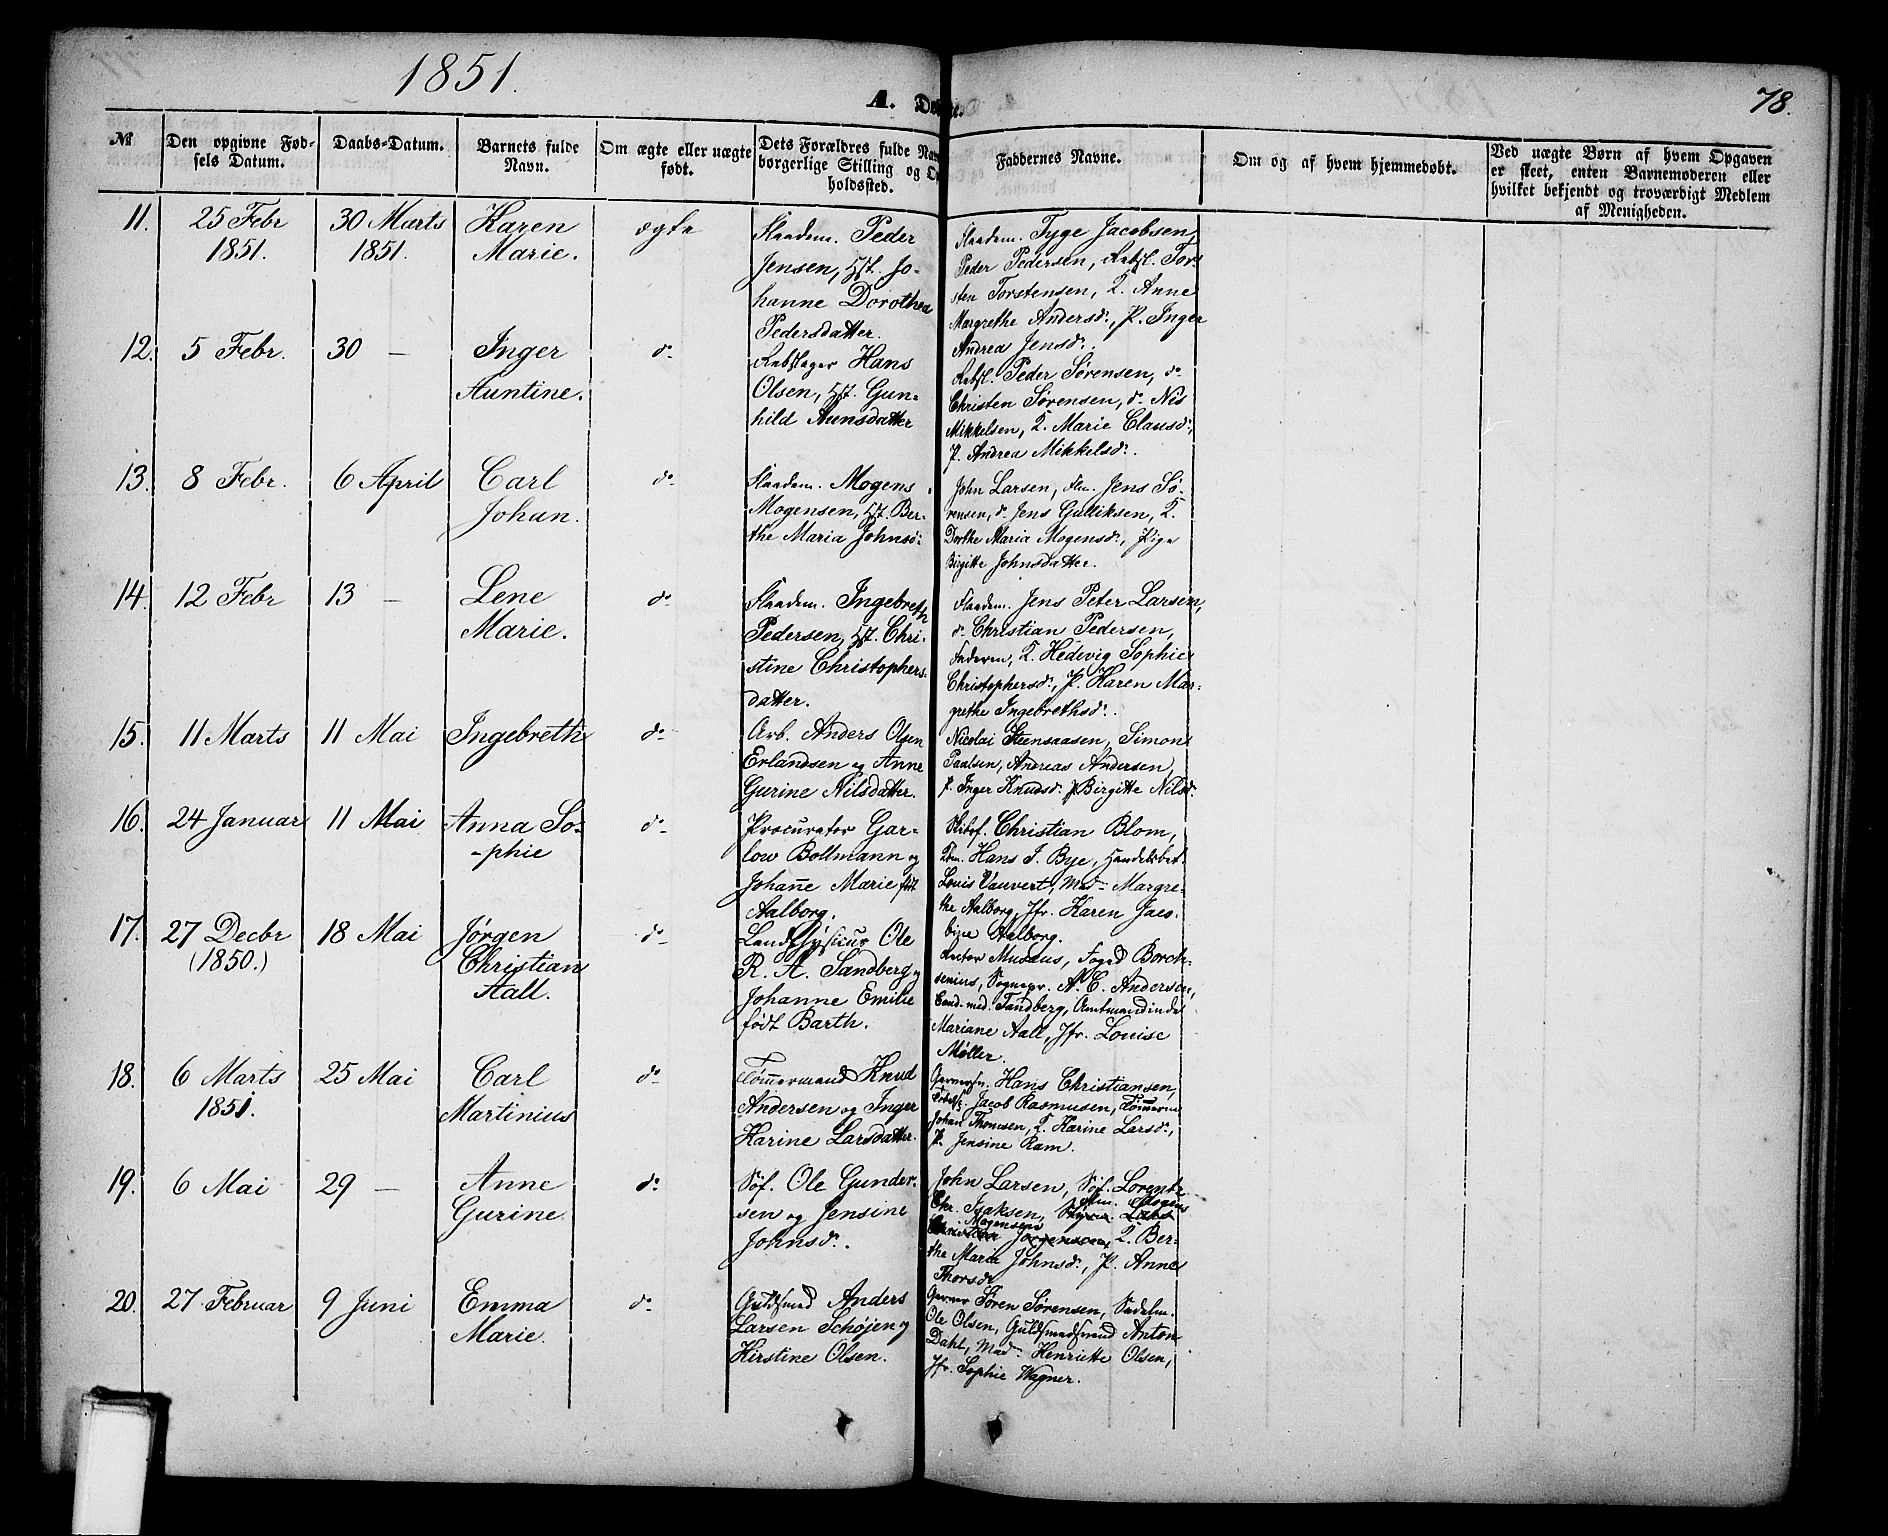 1851.
A. Døbte.
78.
№
Den opgivne Fødsels Datum.
Daabs-Datum.
Barnets fulde Navn.
Om ægte eller uægte født.
Dets Forældres fulde Navn
borgerlige Stilling og
holdssted.
Faddernes Navne.
Om og af hvem hjemmedøbt.
Ved uægte Børn af hvem Opgaven
er skeet, enten Barnemoderen eller
hvilket bekjendt og troværdigt Medlem
af Menigheden.
11.
25 Febr
1851.
30 Marts
1851.
Karen
Marie.
ægte
Flaadem. Peder
Jensen, Hst. Jo-
hanne Dorothea
Pedersdatter.
Flaadem. Tyge Jacobsen,
Peder Pedersen, Rebsl. Tors
sten Torstensen, K. Anne
Margrethe Andersd:, P. Inger
Andrea Jensd:.
12.
5 Febr.
30 —
Inger
Auntine.
do
Rebslager Hans
Olsen, Hst. Gun-
hild Aunsdatter
Rebsl. Peder Sørensen, do
Christen Sørensen, do Nis
Mikkelsen, K. Marie Clausd:,
P. Andrea Mikkelsd:.
13.
8 Febr.
6 April
Carl
Johan.
do
Flaadem. Mogens
Mogensen, Hst. Ber-
the Maria Johnsd:
John Larsen, Flm. Jens Sø-
rensen, do Jens Gulliksen, K.
Dorthe Maria Mogensd:, Pige
Birgitte Johnsdatter.
14.
12 Febr
13 —
Lene
Marie.
do
Flaadem. Ingebreth
Pedersen, Hst. Chri-
stine Christophers-
datter.
Flaadem. Jens Peter Larsen,
do Christian Pedersen,
Faderen, K. Hedevig Sophie
Christophersd:, P. Karen Mar-
grethe Ingebrethsd:.
15.
11 Marts
11 Mai
Ingebreth
do
Arb. Anders Olsen
Erlandsen og Anne
Gurine Nilsdatter.
Nicolai Steensaasen, Simon
Paalsen, Andreas Andersen,
P. Inger Knudsd: P Birgitte Nilsd:
16.
24 Januar
11 Mai
Anna So-
-phie
do
Procurator Gar-
low Bollmann og
Johanne Marie født
Aalborg.
Skibsf. Christian Blom,
Tm. Hans J. Bye, Handelsbet.
Louis Vauvert, Mad= Margre-
the Aalborg, Jfr. Karen Jaco-
bine Aalborg.
17.
27 Decbr
(1850.)
18 Mai
Jørgen
Christian
Aall.
do
Landphysicus Ole
R. A. Sandberg og
Johanne Emilie
født Barth.
Rector Musæus, Foged Borch-
senius, Sognepr. N. C. Andersen,
Cand. med. Tandberg, Amtmandinde
Mariane Aall, Jfr. Louise
Møller.
18.
6 Marts
1851.
25 Mai
Carl
Martinius
do
Tømmermand Knud
Andersen og Inger
Karine Larsdatter.
Garversv. Hans Christiansen,
Jacob Rasmusen, Tømmerm
Johan Thomsen, K. Karine Larsd:,
P. Jensine Ram.
19.
6 Mai
29 —
Anne
Gurine
do
Søf. Ole Gunder-
sen og Jensine
Johnsd:.
John Larsen, Søf. Lorentz
Chr. Isaksen, Flm. Mogens
Mogensen
Jørgensen, K. Ber-
the Maria Johnsd:, P. Anne
Thorsd:
20.
27 Februar
9 Juni
Emma
Marie.
do
Guldsmed Anders
Larsen Schøjen og
Kirstine Olsen.
Garver Søren Sørensen, Sadelm.
Ole Olsen, Guldsmedsvend Anton
Dahl, Mad= Henriette Olsen,
Jfr. Sophie Wagner.